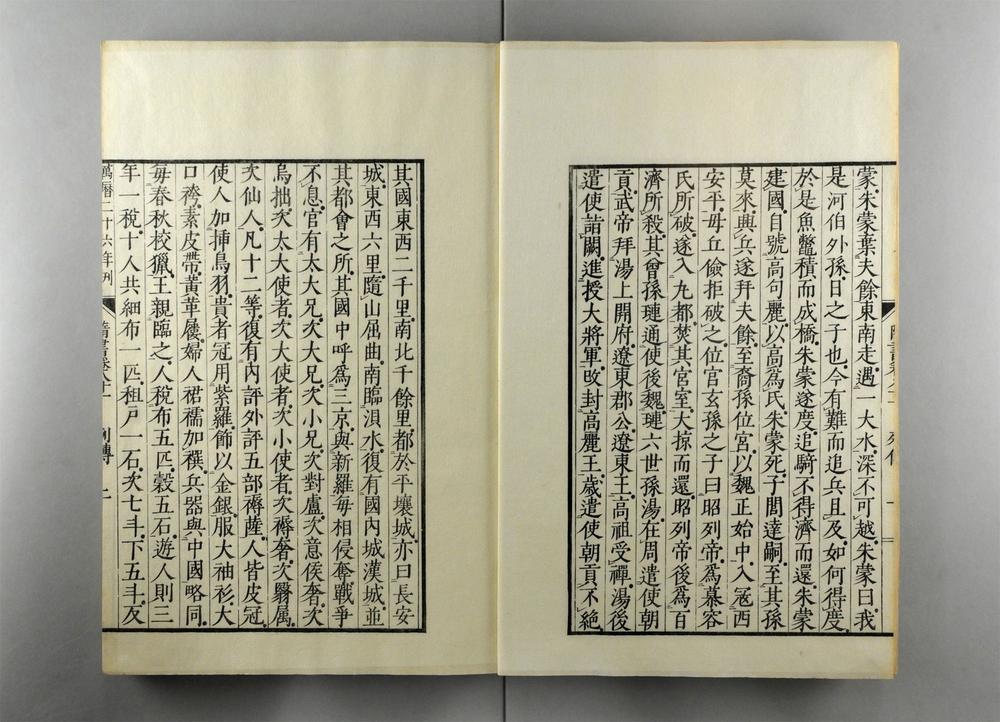 蒙朱蒙棄夫餘東南走遇一大水深不可越朱蒙曰我
是河伯外孫日之子也今有難而追兵且及如何得度
於是魚鼈積而成橋朱蒙遂度追騎不得濟而還朱蒙
建國自號高句麗以高爲氏朱蒙死子閭達嗣至其孫
莫來興兵遂并夫餘至裔孫位宮以魏正始中入寇西
安平毋丘儉拒破之位宮玄孫之子曰昭列帝爲慕容
氏所破遂入丸都焚其宮室大掠而還昭列帝後爲百
濟所殺其曾孫璉通使後魏璉六世孫湯在周遣使朝
貢武帝拜湯上開府遼東郡公遼東王高祖受禪湯後
遣使詣闕進授大將軍改封高麗王歲遣使朝貢不絶
其國東西二千里南北千餘里都於平壤城亦曰長安
城東西六里隨山屈曲南臨浿水復有國內城漢城並
其都會之所其國中呼爲三京與新羅每相侵奪戰爭
不息官有太大兄次大兄次小兄次對盧次意侯奢次
烏拙次太大使者次大使者次小使者次褥奢次翳属
次仙人凡十二等復有內評外評五部褥薩人皆皮冠
使人加插鳥羽貴者冠用紫羅飾以金銀服大袖衫大
口袴素皮帶黃革屨婦人裙襦加襈兵器與中國略同
每春秋校獵王親臨之人稅布五匹穀五石遊人則三
年一稅十人共細布一匹租戸一石次七斗下五斗反
萬曆二十六年刊 隋書卷八十一 列傳 二